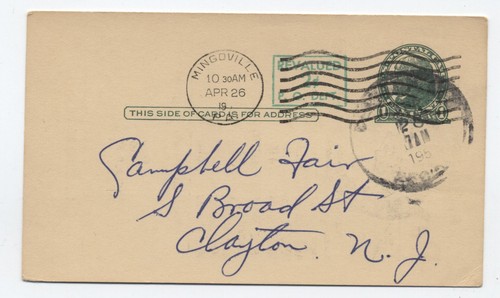 MINGOVILLE
10 30AM
APR 26
19
PA.
REVALUED
P.O. DEPT.
THIS SIDE OF CARD IS FOR ADDRESS
AM
195
Campbell Fair
S Broad St
Clayton N. J.